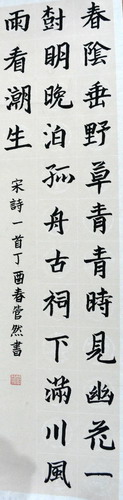 春陰垂野草青青時見幽花一
封明晚泊孤舟古祠下滿川風
雨看潮生
宋詩一首丁酉春管然書